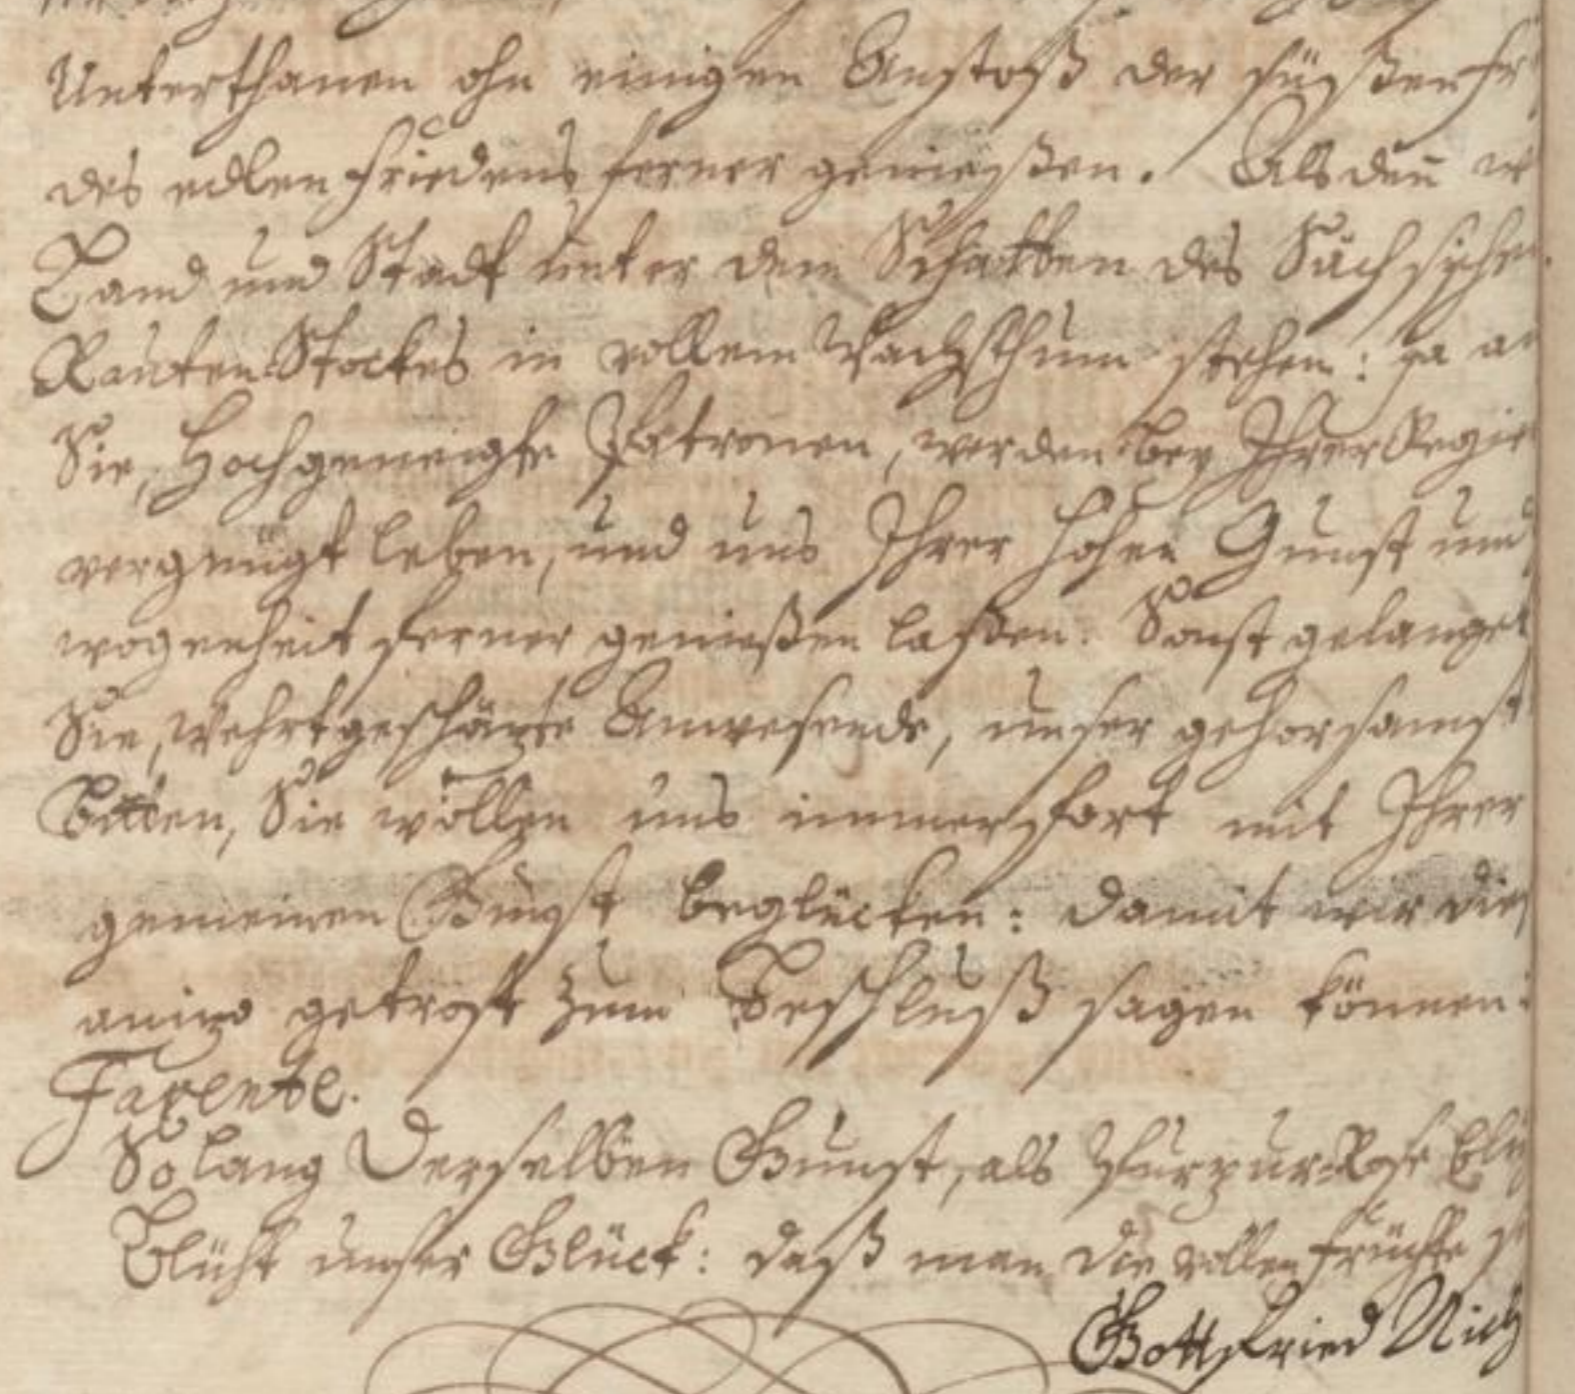 Unterthanen ohn einigen Anstoß der süßen
des edlen Friedens ferner genießen. Als den̄
Land und Stadt unter dem Schatten des Sächsischen
Rauten Stockes in vollem Wachsthum stehen: ja
Sie, Hochgeneigte Patronen, werden bey Ihrer Regie
vergnügt leben, und uns Ihrer hohen Gunst und
wogenheit ferner genießen laßen. Sonst gelanget
Sie, Wehrtgeschäzte Anwesende, unser gehorsamst
Bitten, Sie wollen uns immerfort mit Ihrer
gemeinen Gunst beglücken: damit wir die
anizo getrost zum Beschluß sagen können:
Favente.
So lang Derselben Gunst, als Purpur-Rose blü
Blüht unser Glück: daß man die vollen Früchte
Gottfried